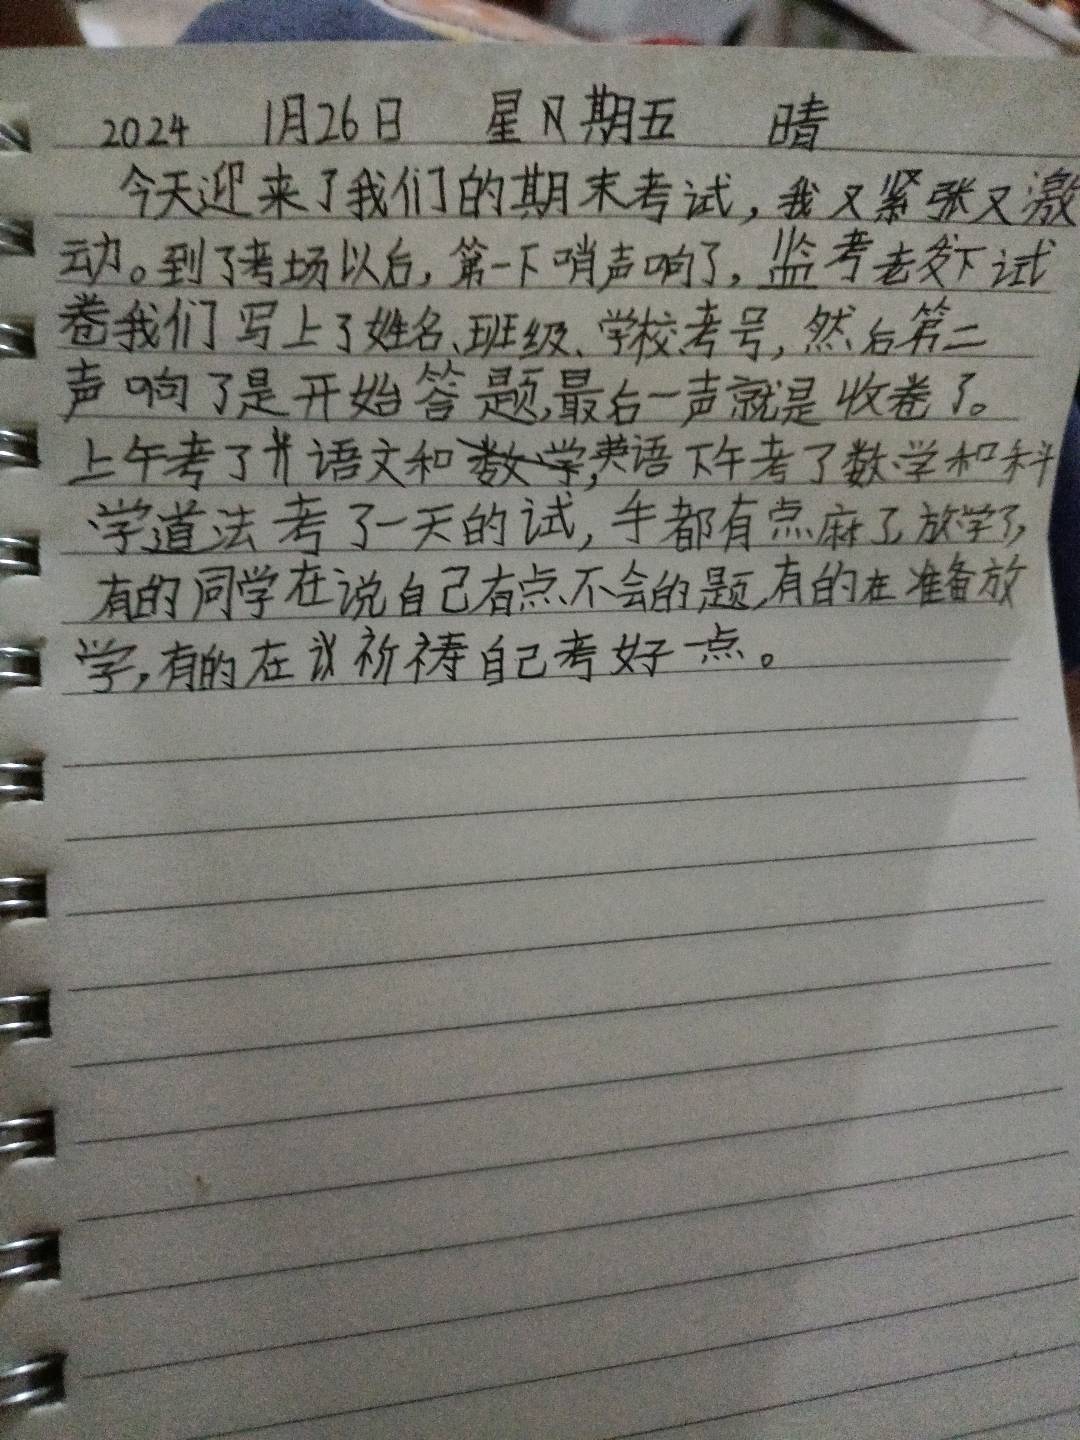 2024 1月26日 星期五 晴
今天迎来了我们的期末考试，我又紧张又激
动。到了考场以后，第一下哨声响了，监考老发下试
卷我们写上了姓名、班级、学校、考号，然后第二
声响了是开始答题，最后一声就是收卷了。
上午考了语文和数学，英语下午考了数学和科
学道法考了一天的试，手都有点麻了，放学了，
有的同学在说自己有点不会的题，有的在准备放
学，有的在祈祷自己考好一点。